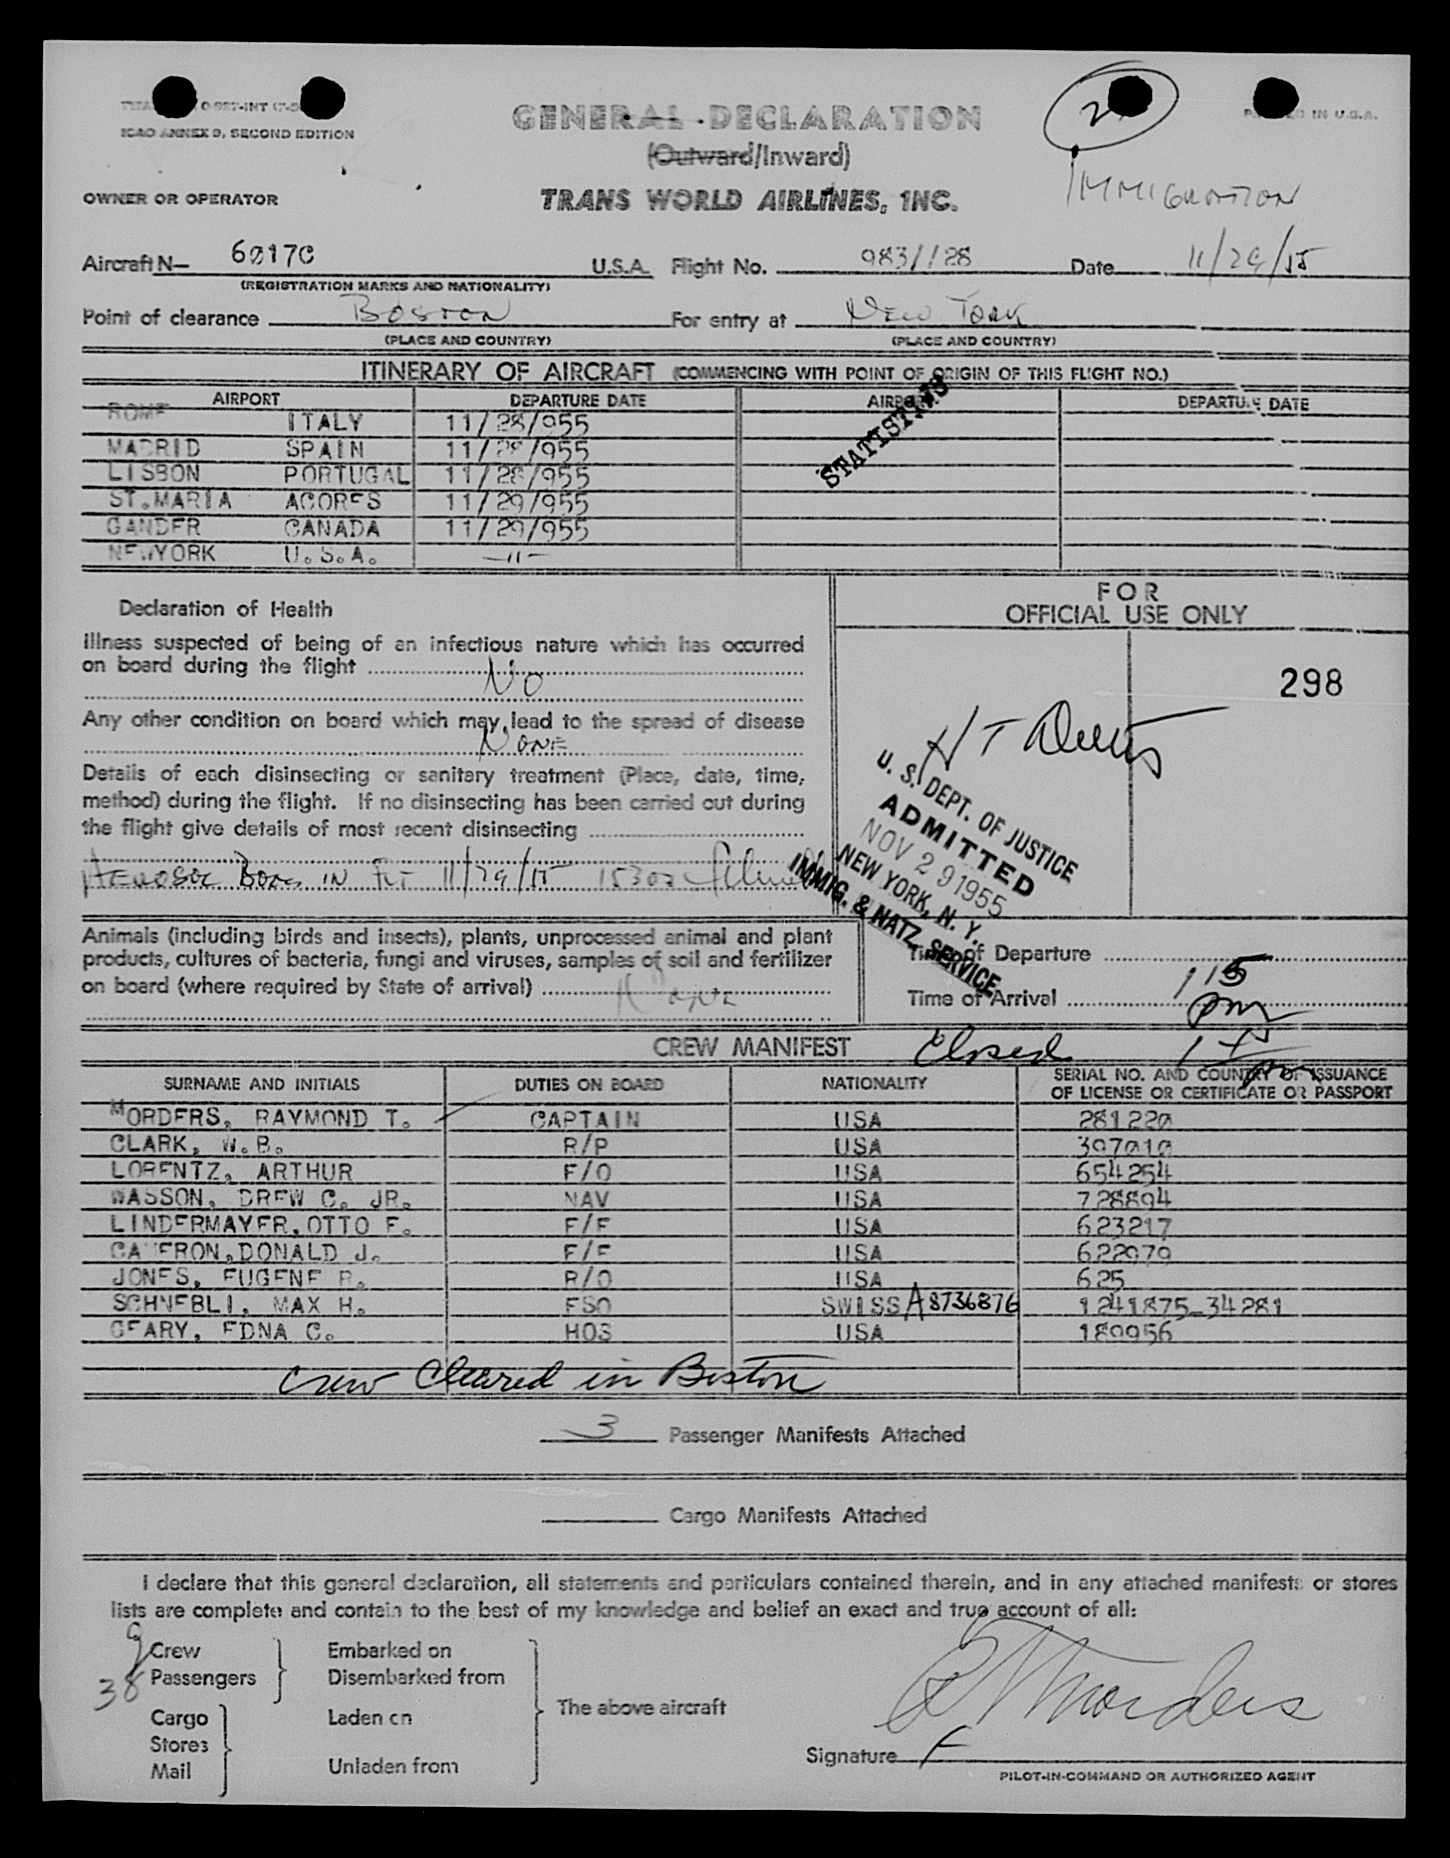 ICAO ANNEX 9, SECOND EDITION
GENERAL DECLARATION
(Outward/Inward)
IN U.S.A.
IMMIGRATION
OWNER OR OPERATOR
TRANS WORLD AIRLINES, INC.
Aircraft N— 6017C U.S.A. Flight No. 983/128 Date 11/29/55
(REGISTRATION MARKS AND NATIONALITY)
Point of clearance BOSTON For entry at NEW YORK
(PLACE AND COUNTRY) (PLACE AND COUNTRY)
ITINERARY OF AIRCRAFT (COMMENCING WITH POINT OF ORIGIN OF THIS FLIGHT NO.)
AIRPORT DEPARTURE DATE AIRPORT DEPARTURE DATE
ROME ITALY 11/28/955
MADRID SPAIN 11/28/955
LISBON PORTUGAL 11/28/955
ST.MARIA ACORES 11/29/955
GANDER CANADA 11/29/955
NEWYORK U.S.A. —11—
STATISTICS
Declaration of Health
FOR
OFFICIAL USE ONLY
Illness suspected of being of an infectious nature which has occurred
on board during the flight
NO
298
Any other condition on board which may lead to the spread of disease
NONE
Details of each disinsecting or sanitary treatment (Place, date, time,
method) during the flight. If no disinsecting has been carried out during
the flight give details of most recent disinsecting
AEROSOL BOMB IN FLT 11/29/55 1530Z
U. S. DEPT. OF JUSTICE
ADMITTED
NOV 29 1955
NEW YORK, N. Y.
IMMIG. & NATZ. SERVICE
Animals (including birds and insects), plants, unprocessed animal and plant
products, cultures of bacteria, fungi and viruses, samples of soil and fertilizer
on board (where required by State of arrival) None
Time of Departure
Time of Arrival 115 pm
CREW MANIFEST Closed
SURNAME AND INITIALS DUTIES ON BOARD NATIONALITY SERIAL NO. AND COUNTRY OF ISSUANCE
OF LICENSE OR CERTIFICATE OR PASSPORT
MORDERS, RAYMOND T. CAPTAIN USA 281220
CLARK, W.B. R/P USA 397010
LORENTZ, ARTHUR F/O USA 654254
WASSON, DREW C. JR. NAV USA 728894
LINDERMAYER,OTTO F. F/E USA 623217
CAMERON,DONALD J. F/E USA 622979
JONES, EUGENE R. R/O USA 625
SCHNEBLI, MAX H. FSO SWISS A8736876 1241875-34281
GEARY, EDNA C. HOS USA 189956
Crew Cleared in Boston
3 Passenger Manifests Attached
Cargo Manifests Attached
I declare that this general declaration, all statements and particulars contained therein, and in any attached manifests or stores
lists are complete and contain to the best of my knowledge and belief an exact and true account of all:
9 Crew Embarked on
38 Passengers Disembarked from
The above aircraft
Cargo Laden on
Stores
Mail Unladen from
R T Morders
Signature
PILOT-IN-COMMAND OR AUTHORIZED AGENT